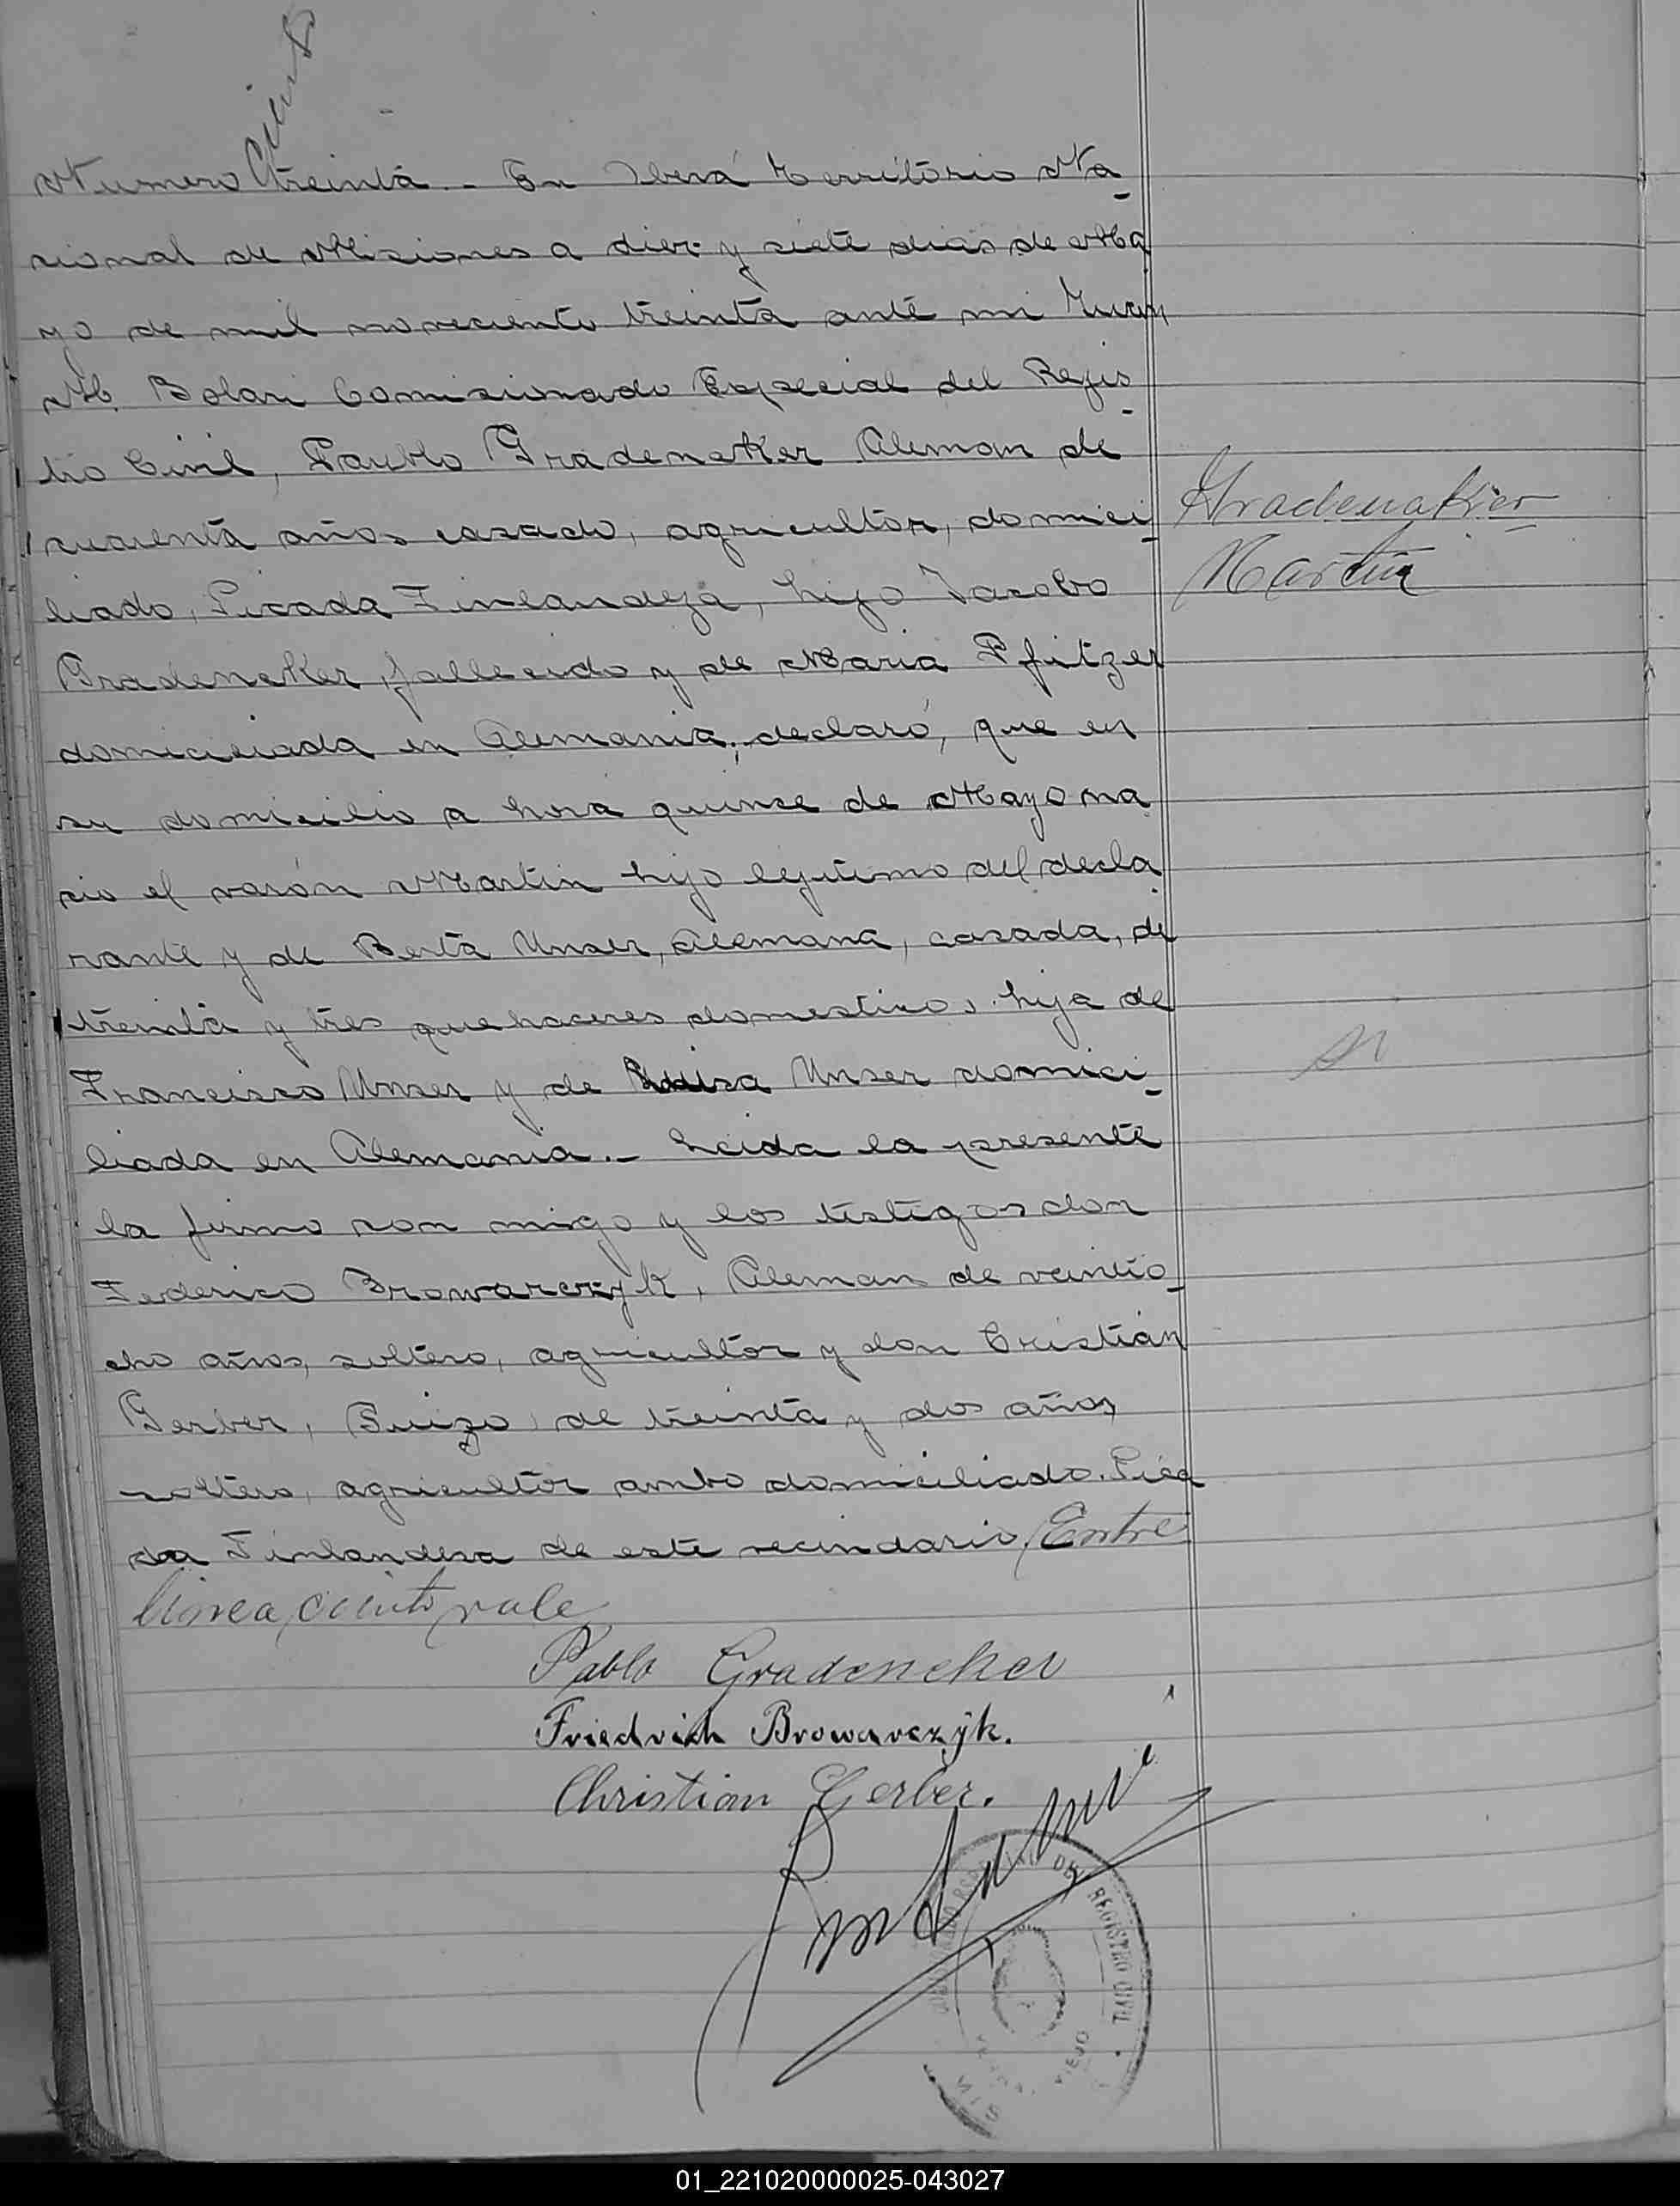 Ciento
Numero treinta.- En Iberá Territorio Na-
cional de Misiones a diez y siete dias de Ma
yo de mil noveciento treinta ante mi
M. Bolari Comisionado Especial del Regis-
tro Civil, Paublo Gradeneker Aleman de
cuarenta años casado, agricultor, domici-
liado, Picada Finlandeza, hijo Jacobo
Gradeneker, fallecido y de Maria Pfitzer
domiciliada en Alemania, declaró, que en
su domicilio a hora quinse de Mayo na
cio el varón Martin hijo legitimo del decla
rante y de Berta Unser, Alemana, casada, de
treinta y tres quehaceres domesticos hija de
Francisco Unser y de Luisa Unser domici-
liada en Alemania.- Leida la presente
la firmo con migo y los testigos don
Federico Browarczyk, Aleman de veintio-
cho años, soltero, agricultor y don Cristián
Gerber, Suizo, de treinta y dos años
soltero, agricultor ambo domiciliado. Pica
da Finlandesa de este vecindario, Entre
linea, ciento, vale
Gradenakier
Martin
Pablo Gradeneker
Friedrich Browarczyk.
Christian Gerber.
DEL REGISTRO CIVIL
VIEJO
MIS
01_221020000025-043027